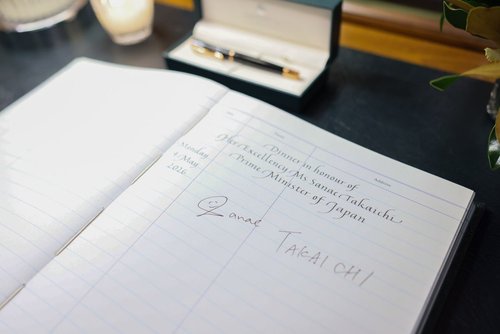 Address
Dinner in honour of
Her Excellency Ms Sanae Takaichi
Prime Minister of Japan
Monday
4 May
2026
Sanae TAKAICHI